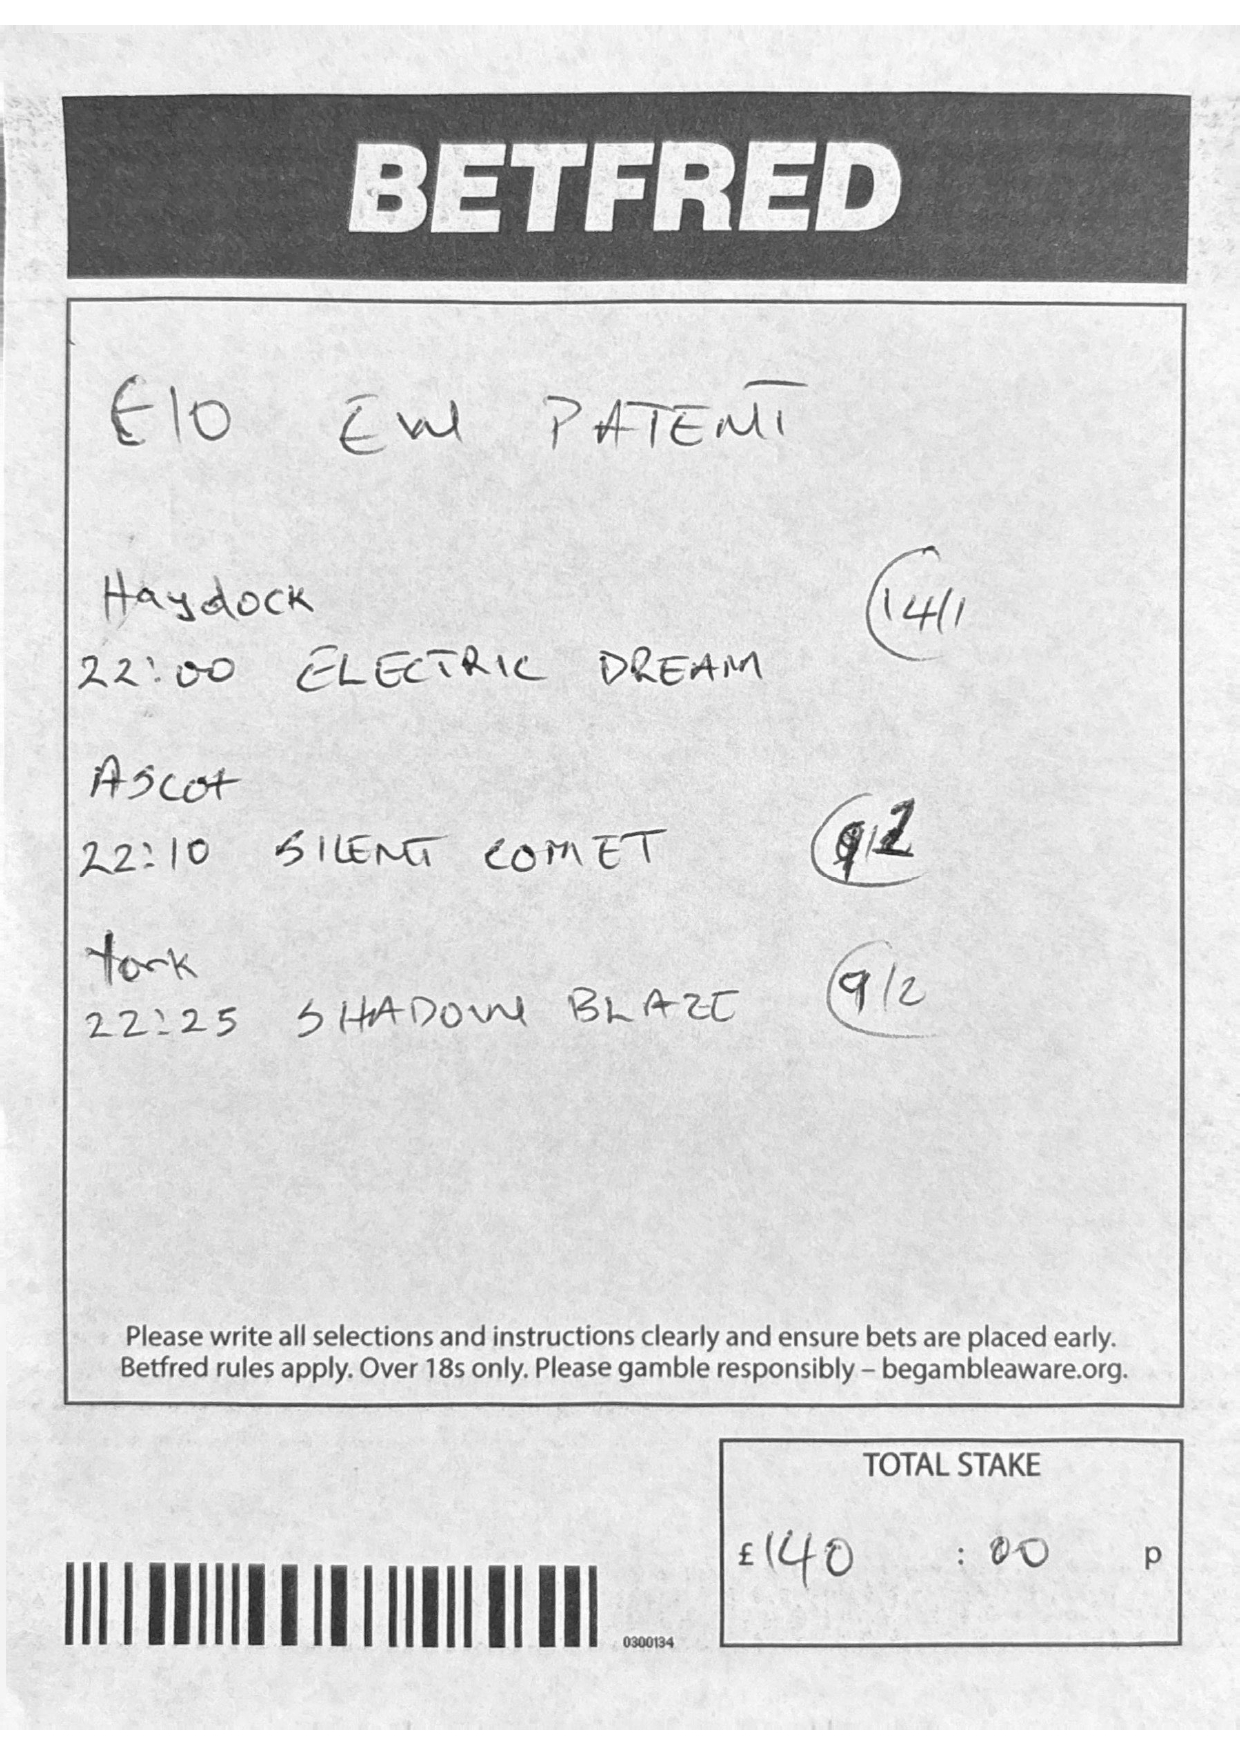 BETFRED
£10 EW PATENT
Haydock
14/1
22:00 ELECTRIC DREAM
Ascot
22:10 SILENT COMET 9/2
York
22:25 SHADOW BLAZE 9/2
Please write all selections and instructions clearly and ensure bets are placed early.
Betfred rules apply. Over 18s only. Please gamble responsibly – begambleaware.org.
TOTAL STAKE
£140 : 00 p
0300134